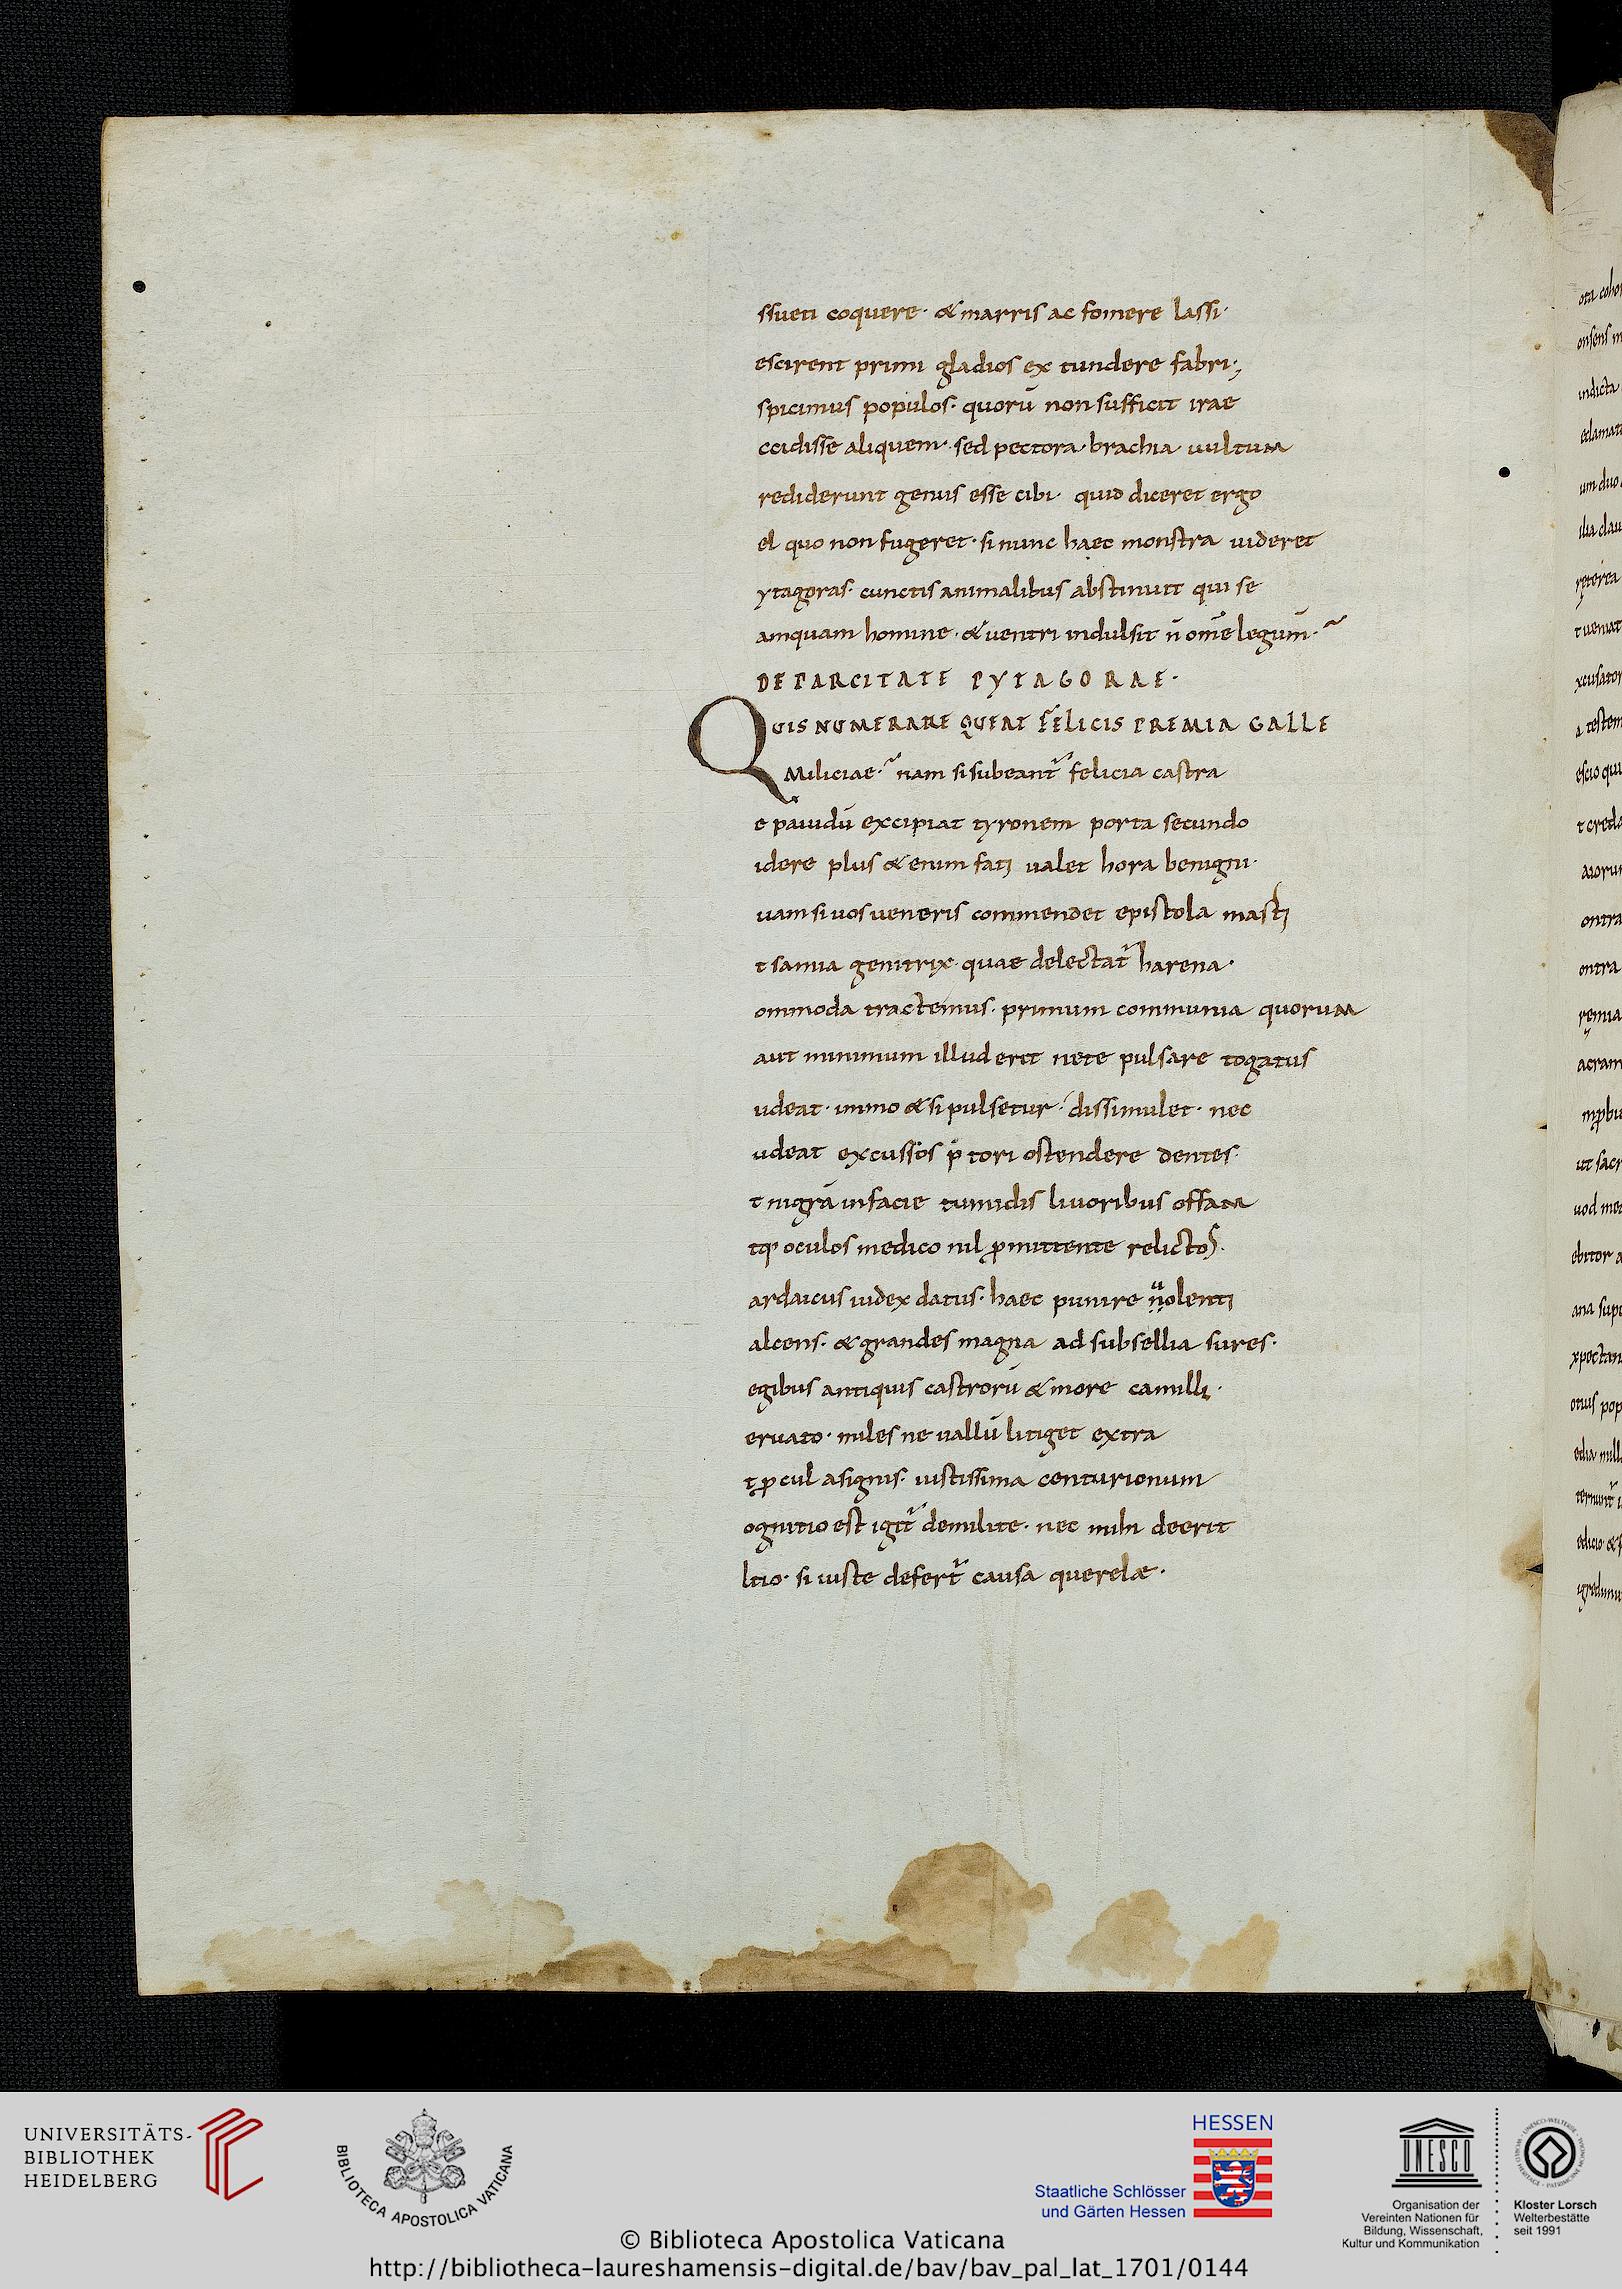 ssueti coquere· & marris ac fomere lassi·
escirent primi gladios ex tundere fabri·,
spicimus populos· quorū non sufficit irae
ccidisse aliquem· sed pectora· brachia uultum
rediderunt genus esse cibi· quid diceret ergo
el quo non fugeret· si nunc haec monstra uideret
ytagoras· cunctis animalibus abstinuit qui se
amquam homine· & uentri indulsit n̄ om̄e legum̄·
DE PARCITATE PYTAGORAE·
QUIS NUMERARE QUEAT FELICIS PREMIA GALLE
Miliciae· nam si subeant᷑ felicia castra
e pauidū excipiat tyronem porta secundo
idere plus & enim fati ualet hora benigni·
uam si uos ueneris commendet epistola marti
t samia genitrix· quae delectat᷑ harena·
ommoda tractemus· primum communia quorum
aut minimum illud erit nete pulsare togatus
udeat· immo & si pulsetur· dissimulet· nec
udeat excussos p̄tori ostendere dentes·
t nigrā in facie tumidis liuoribus offam
tq· oculos medico nil ꝓmittente relictos·
ardaicus iudex datus· haec punire n̄olenti
alcens· & grandes magna ad subsellia sures·
egibus antiquis castrorū & more camilli·
eruato· miles ne uallū litiget extra
t ꝓcul asignis· iustissima centurionum
ognitio est igit᷑ demilite· nec mihi deerit
ltio· si iuste defert᷑ causa querelæ·
ota coho
onsens m
indicta
eclamat
um duo
ilia clau
t ueniat
xcusator
a testem
escio qui
t creda
aiorum
ontra
ontra
remia
acram
ut sacr
uod me
ebitor a
ana sup
xpectan
otius pop
edia mill
UNIVERSITÄTS-
BIBLIOTHEK
HEIDELBERG
BIBLIOTECA APOSTOLICA VATICANA
HESSEN
Staatliche Schlösser
und Gärten Hessen
UNESCO
Organisation der
Vereinten Nationen für
Bildung, Wissenschaft,
Kultur und Kommunikation
Kloster Lorsch
Welterbestätte
seit 1991
© Biblioteca Apostolica Vaticana
http://bibliotheca-laureshamensis-digital.de/bav/bav_pal_lat_1701/0144